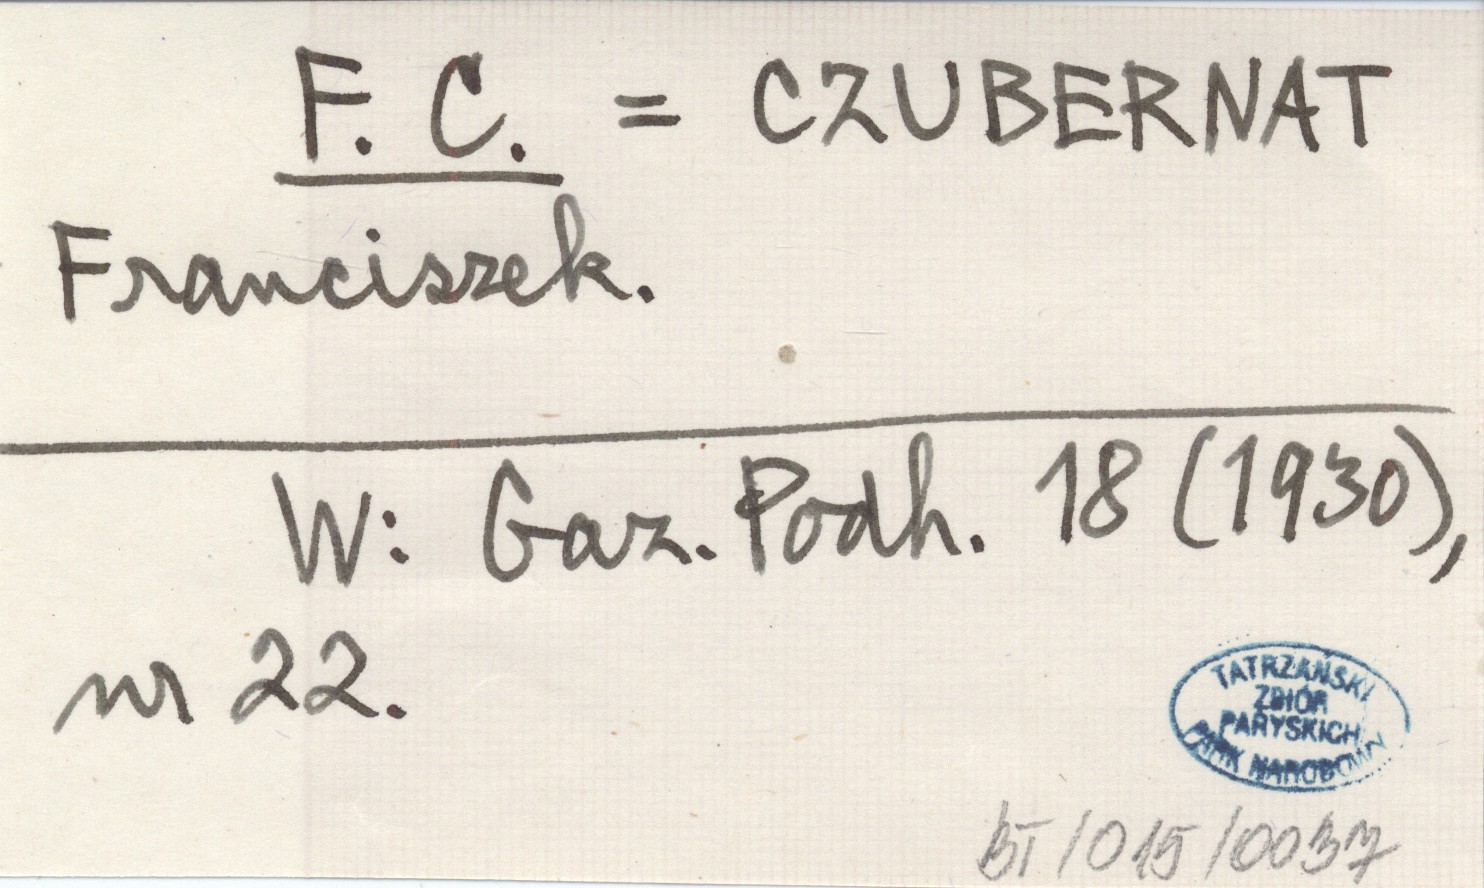 F. C. = CZUBERNAT
Franciszek.
W: Gaz. Podh. 18 (1930),
nr 22.
TATRZAŃSKI
ZBIÓR
PARYSKICH
PARK NARODOWY
BT/015/0037